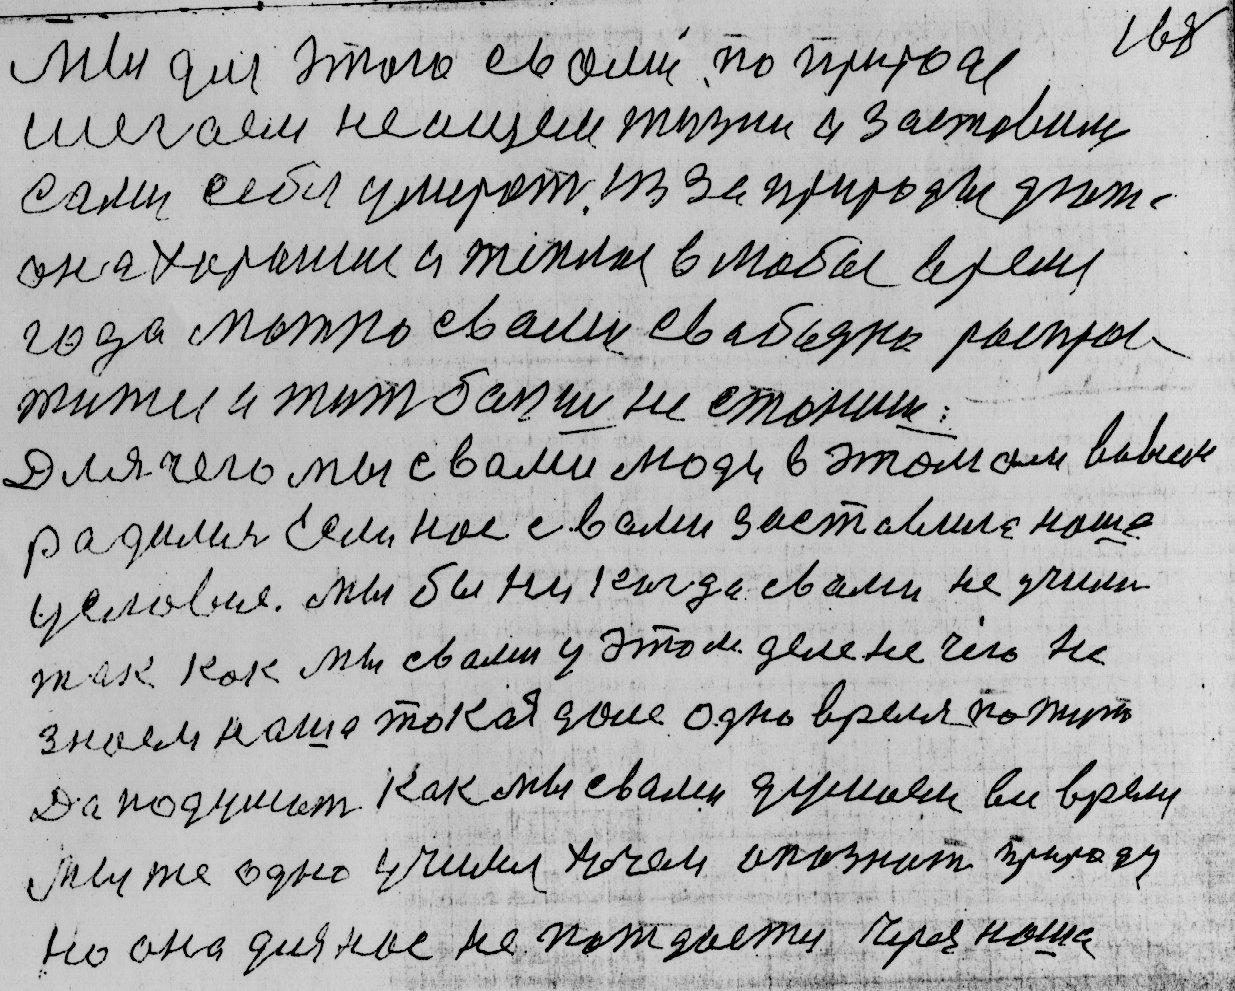 168
Мы для этого свами по природе
шегаем неищем жизни а заставим
сами себя умират. Из за природы
она хорошие и теплые в любое время
года можно свами свабодно распро
и тут бани не стоним.
Для чего мы свами люди в этом
радилися Если нас свами заставила наша
условие. мы бы ни когда свами не учили
так как мы свами у этом деле не чего не
знаем наша такая доле одно время пожит
Да подумат как мы свами думаем вы время
мы же одно учимся хочем опознат природу
но она для нас не через наша